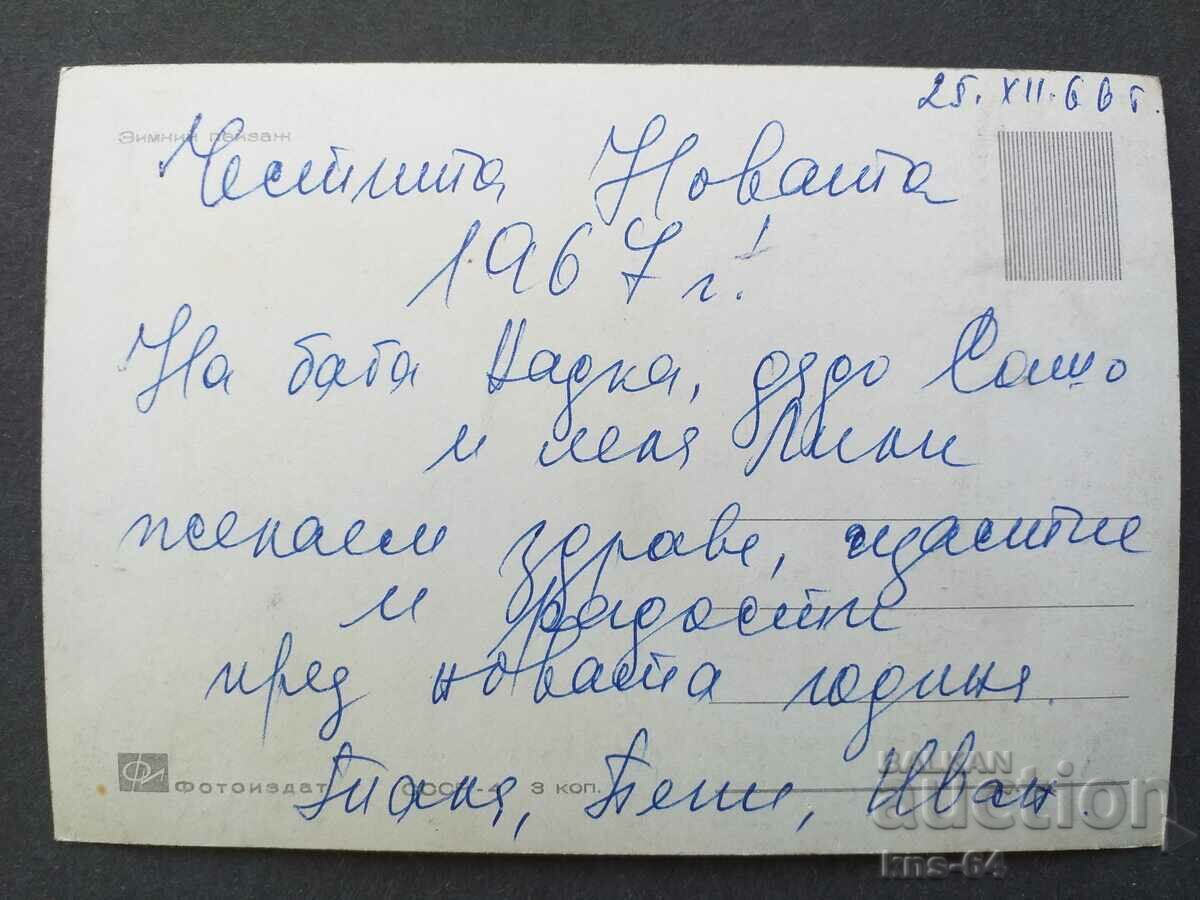 25. XII. 66 г.
Зимний пейзаж
Честита Новата
1967 г.!
На баба Надка, дядо Сашо
и леля Лили
желаем здраве, щастие
и радост
през новата година.
Таня, Пепи, Иван.
Фотоиздат СССР 3 коп.
BALKAN
auction
kns-64